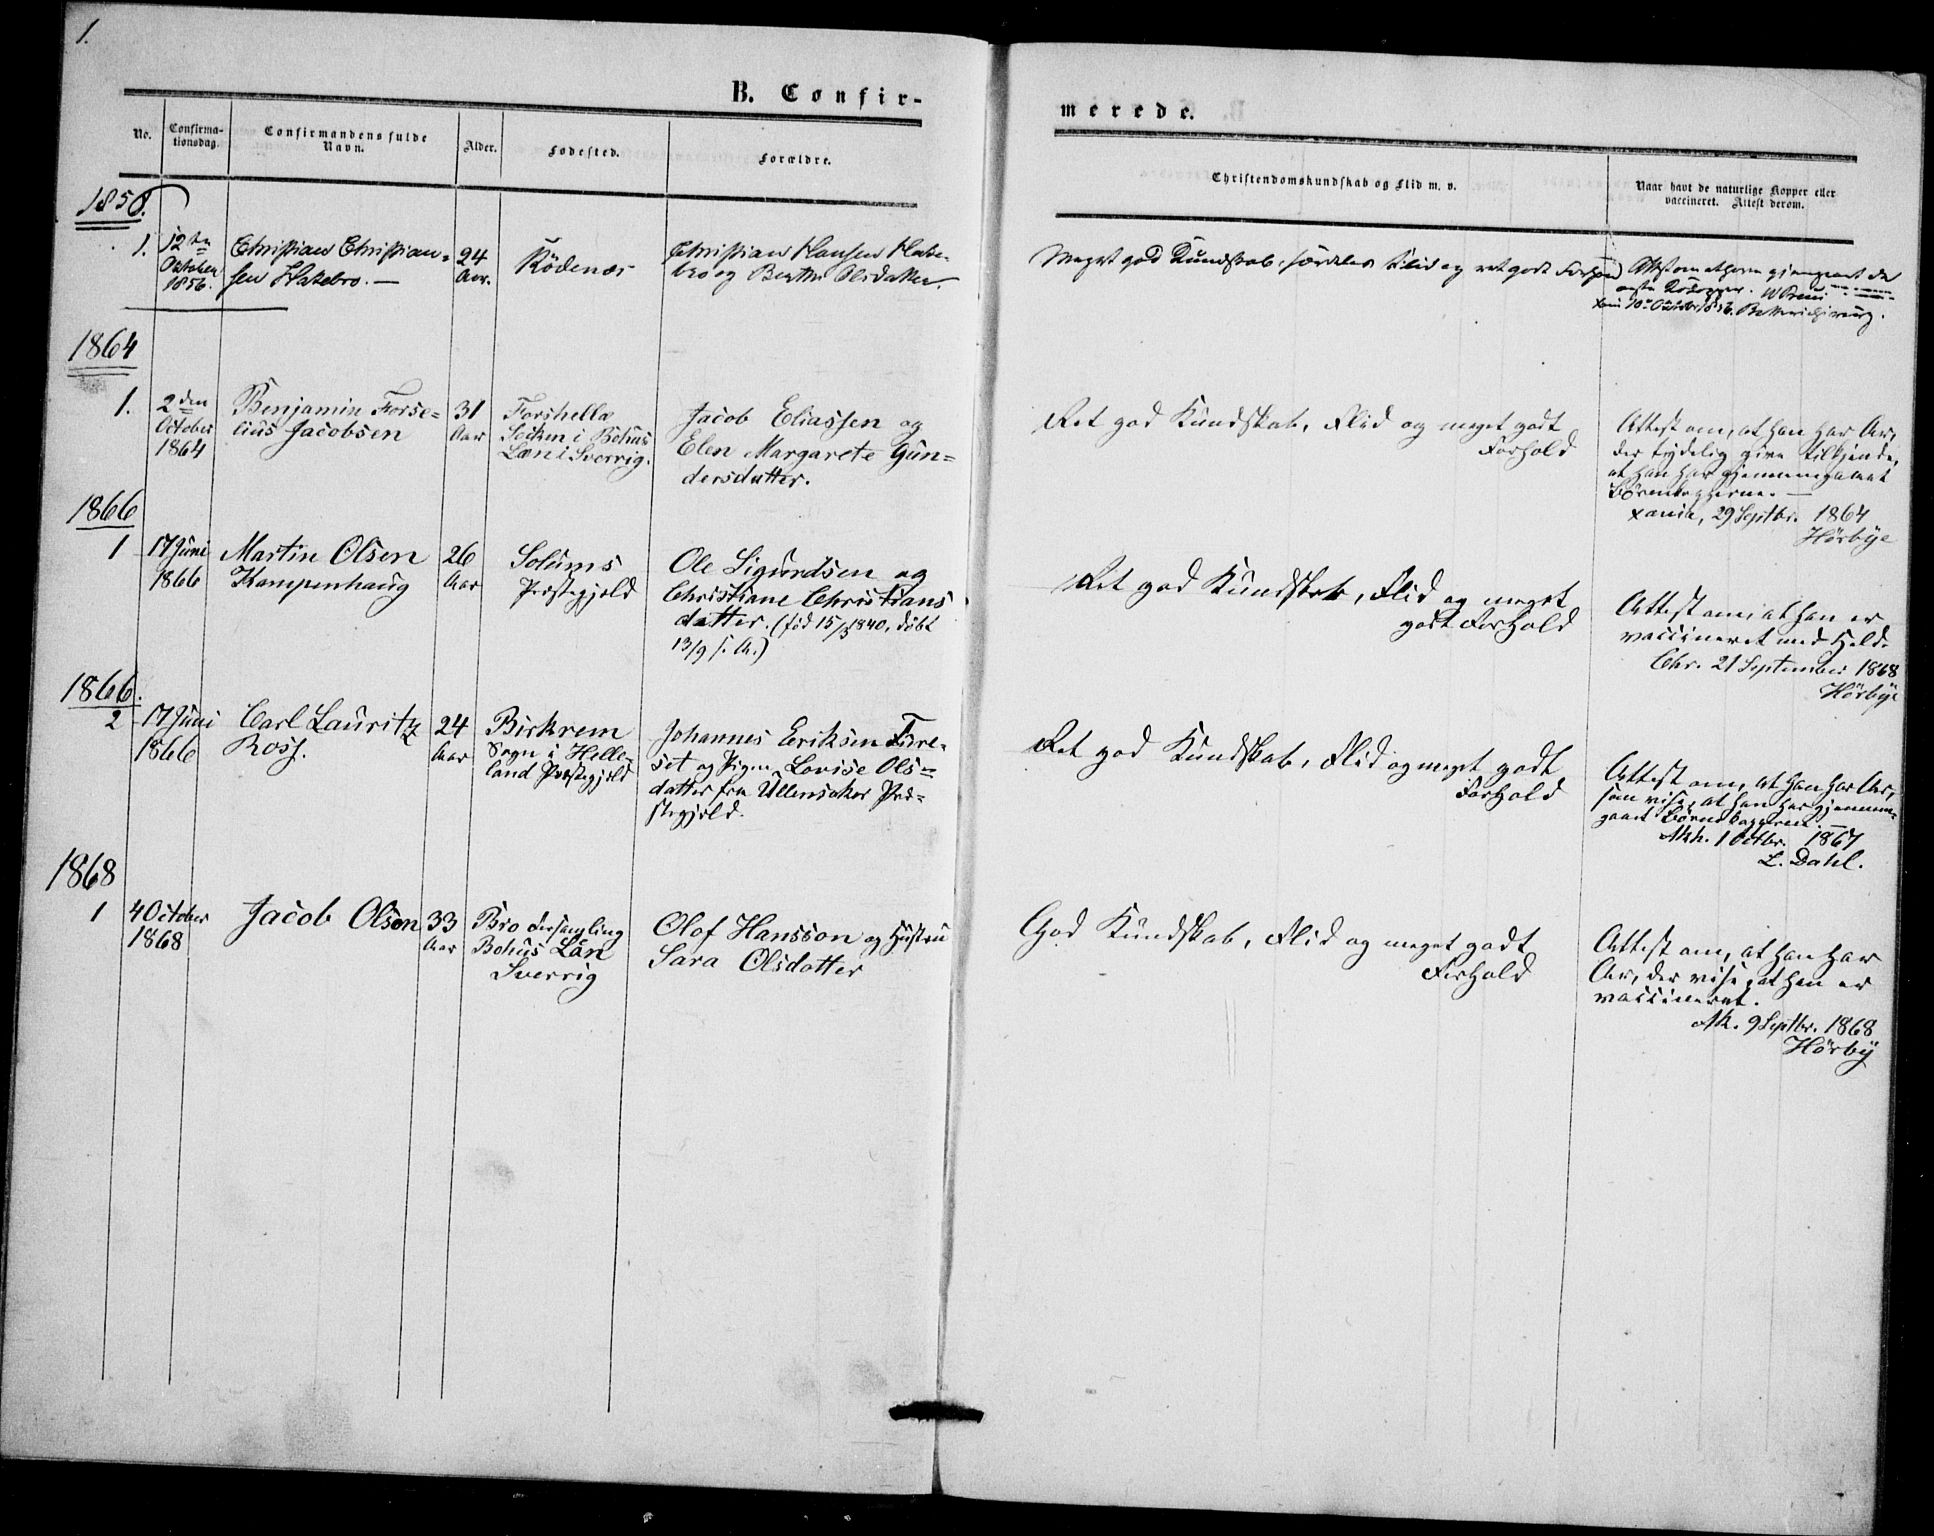 1.
B. Confir-
merede.
No.
Confirma-
tionsdag.
Confirmandens fulde
Navn.
Alder.
Fødested.
Forældre.
Christendomskundskab og Flid m. v.
Naar havt de naturlige Kopper eller
vaccineret. Attest derom.
1.
12te
Oktober
1856.
Christian Christian-
sen Hakebro. —
24
Aar.
Rödenæs
Christian Hansen Hake-
bro og Berthe Olsdatter.
Meget god Kundskab, særdeles Flid og ret godt Forhold
Attest om at have gjennemgaaet de
10de Oktbr 1856.
1864
1.
2den
October
1864
Benjamin Forse-
lius Jacobsen
31
Aar
Forshella
Socken i Bohus
Læn i Sverrig.
Jacob Eliassen og
Elen Margarete Gun-
dersdatter.
Ret god Kundskab, Flid og meget godt
Forhold
Attest om, at han har Ar,
der tydelig give tilkjende,
at han har gjennemgaaet
Børnekopperne. —
Xania, 29 Septbr. 1864
Hörbye
1866
1
17 Juni
1866
Martin Olsen
Kampenhaug
26
Aar
Solums
Præstegjeld
Ole Sigurdsen og
Christiane Christians
datter. (fød 15/3 1840, døbt
13/9 s. A.)
Ret god Kundskab, Flid og meget
godt Forhold
Attest om, at han er
vaccineret med Held.
Chr. 21 September 1868
Hörbye
1866.
2
17 Juni
1866
Carl Lauritz
Ross.
24
Aar
Birkrem
Sogn i Helle-
land Præstegjeld
Johannes Eriksen Fure-
set og Pigen Lovise Ols-
datter fra Ullensaker Præ-
stegjeld.
Ret god Kundskab, Flid og meget godt
Forhold
Attest om, at han har Ar,
som vise, at han har gjennem-
gaaet Børnekopperne. —
Akh. 1 Octbr. 1867
L. Dahl.
1868
1
4 October
1868
Jacob Olsen
33
Aar
Bro Forsamling
Bohus Län
Sverrig
Olof Hansson og Hustru
Sara Olsdotter
God Kundskab, Flid og meget godt
Forhold
Attest om, at han har
Ar, der vise, at han er
vaccineret.
Ak. 9 Septbr. 1868
Hörby